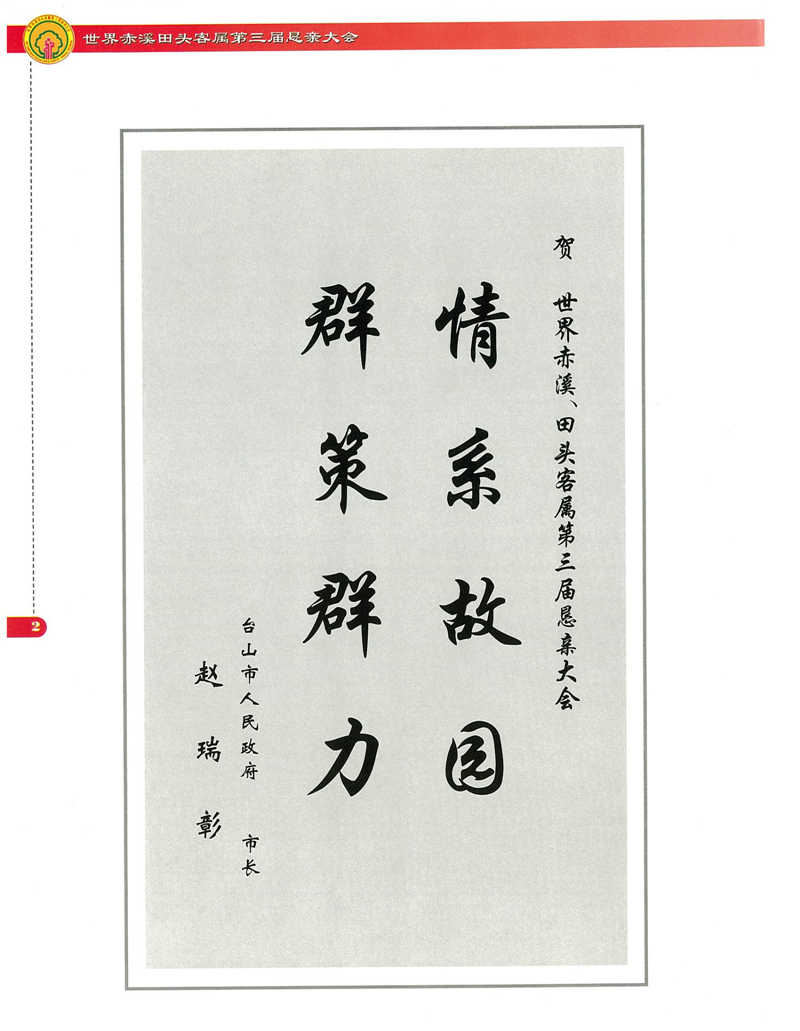 世界赤溪田头客属第三届恳亲大会
贺 世界赤溪、田头客属第三届恳亲大会
情系故园
群策群力
台山市人民政府 市长
赵瑞彰
2